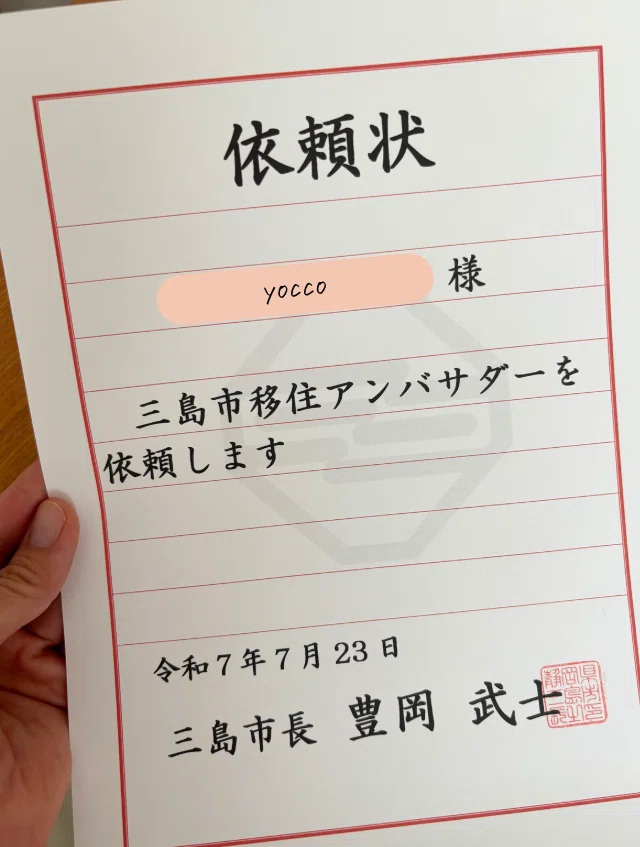 依頼状
yocco 様
三島市移住アンバサダーを
依頼します
令和7年7月23日
三島市長 豊岡 武士